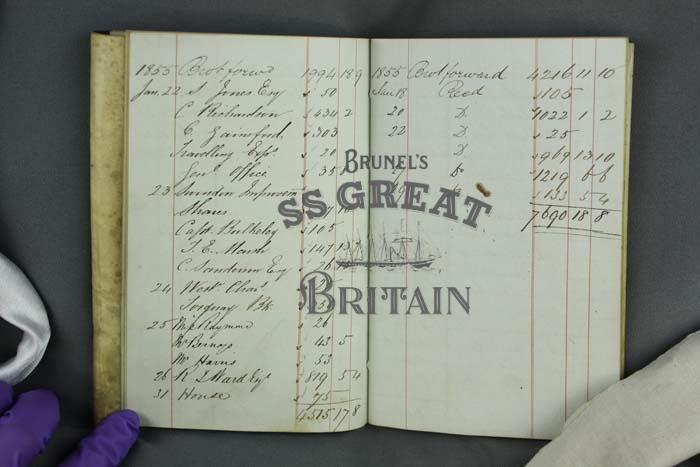 1855 Brot forwd 1994 18 9
Jan. 22 S. Jones Esq 50
C Richardson 434 2
C. Gainford 303
Travelling Exps 20
Genl Office 35
23 Swindon Improvem
Shares
Capt Bulkeley 105
T. E. Marsh 147 13
C. Sanderson Esq 26
24 West Char
Torquay
25 26
43 5
Mr Harris 53
26 R J Ward Esq 819 5 4
31 House 75
4515 17 8
1855 Brot forward 4216 11 10
Jan 18 Recd 105
20 D. 1022 1 2
22 D. 25
D 969 13 10
1219 6 6
133 5 4
7690 18 8
BRUNEL'S
SS GREAT
BRITAIN